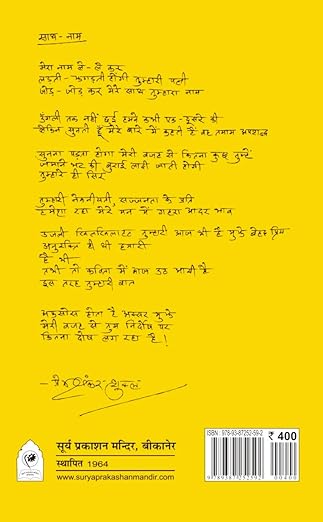 साथ-नाम
मेरा नाम ले-ले कर
लड़ती-झगड़ती होगी तुम्हारी पत्नी
जोड़-जोड़ कर मेरे साथ तुम्हारा नाम
उँगली तक नहीं छुई हमने कभी एक-दूसरे की
लेकिन सुनती हूँ मेरे बारे में कहती है वह तमाम अपशब्द
सुनना पड़ता होगा मेरी वजह से कितना कुछ तुम्हें
ज़माने भर की बुराई लादी जाती होगी
तुम्हारे ही सिर
तुम्हारी नेकनीयती, सज्जनता के प्रति
हमेशा रहा मेरे मन में गहरा आदर भाव
उजली खिलखिलाहट तुम्हारी आज भी है मुझे बेहद प्रिय
अनुरक्ति ही थी हमारी
है भी
तभी तो कविता में आज उठ आयी है
इस तरह तुम्हारी बात
अफ़सोस होता है अक्सर मुझे
मेरी वजह से तुम निर्दोष पर
कितना दोष लग रहा है!
सूर्य प्रकाशन मन्दिर, बीकानेर
स्थापित 1964
www.suryaprakashanmandir.com
ISBN 978-93-87252-59-2
₹ 400
9 789387 252592
00400